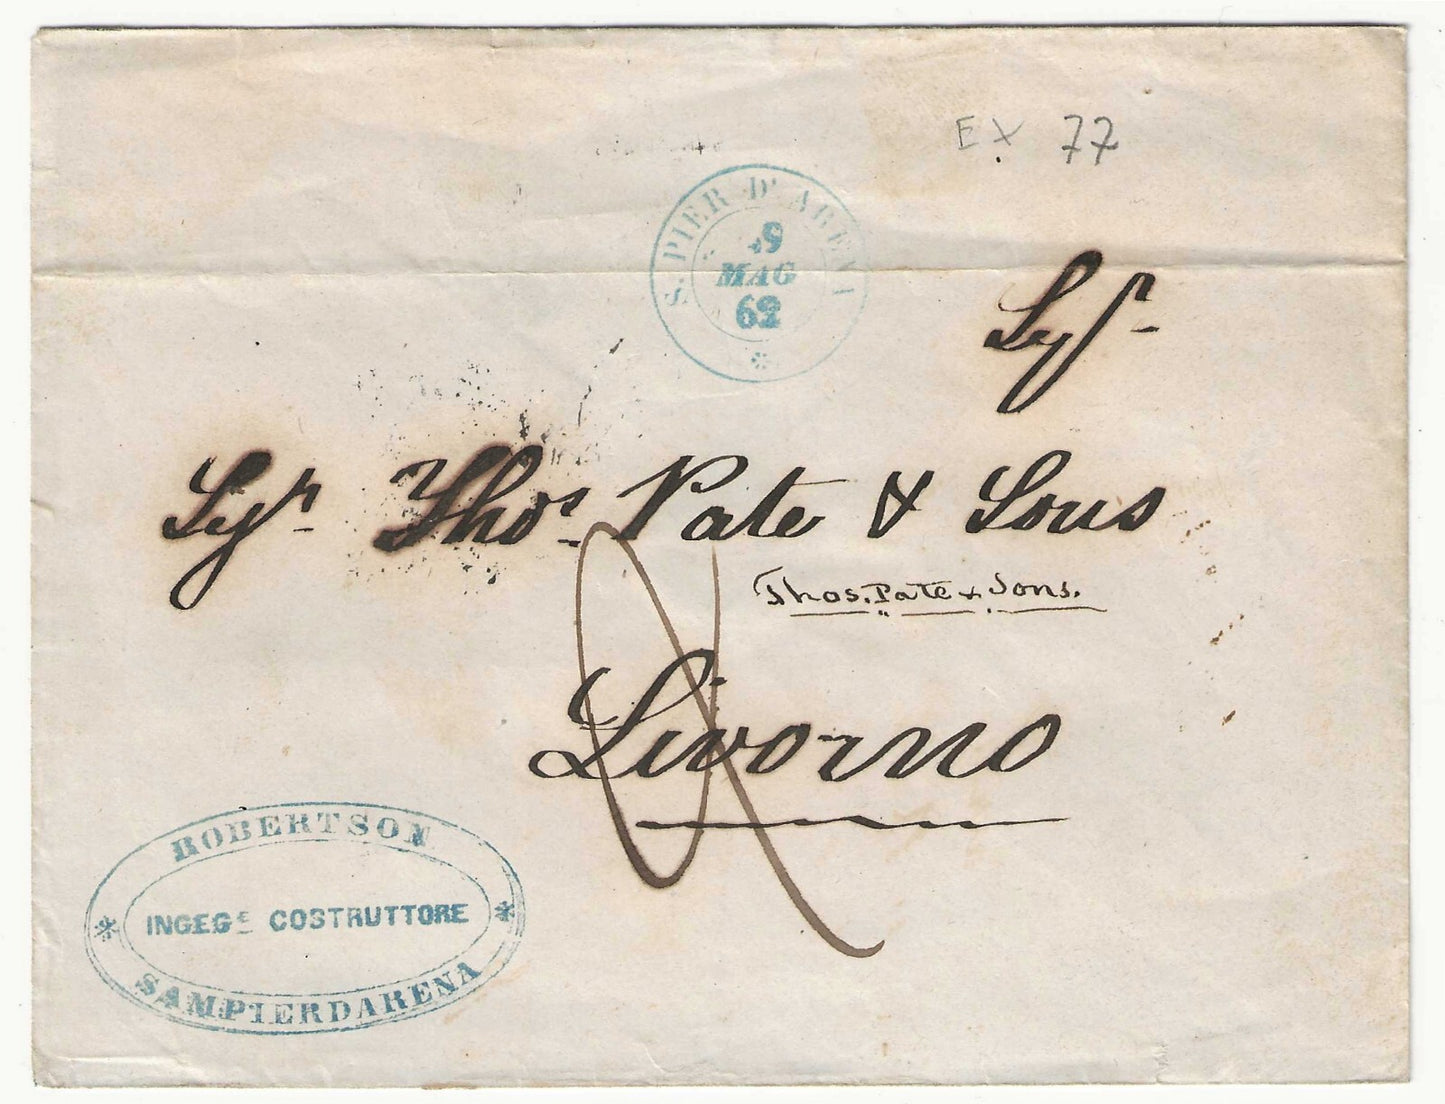 EX 77
S. PIER D'ARENA
9
MAG
62
Sigr
Sigr Thos Pate & Sons
Thos. Pate & Sons.
Livorno
ROBERTSON
INGEGE COSTRUTTORE
SAMPIERDARENA